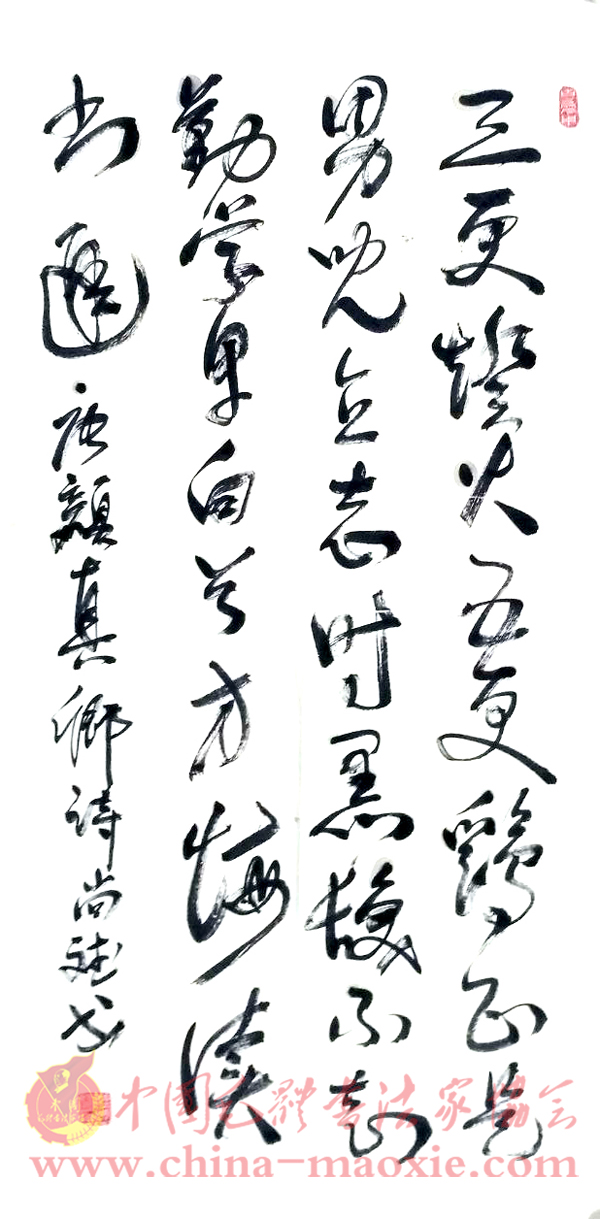 三更燈火五更鷄正是
男兒立志時黑髮不知
勤学早白首方悔读
书遲
唐顏真卿詩尚斌书
中国毛體书法家協会
www.china-maoxie.com